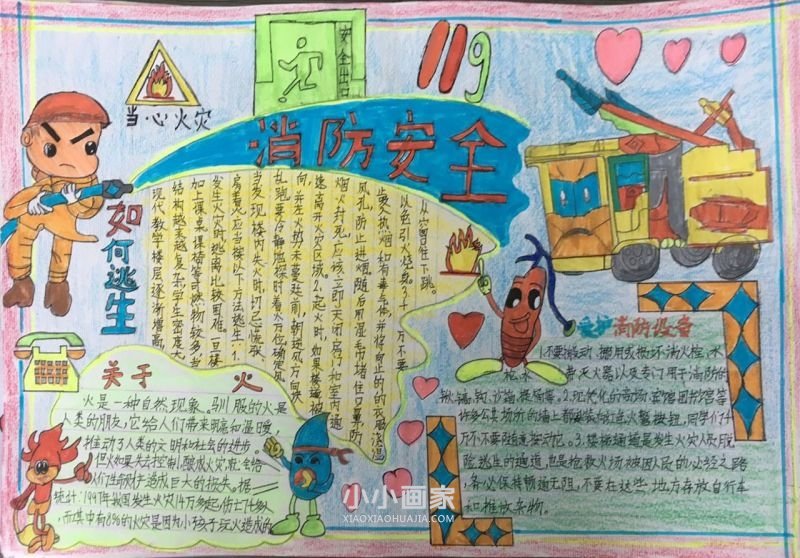 当心火灾
安全出口
119
消防安全
如何逃生
现代教学楼层逐渐增高,
结构越来越复杂,学生密度大
加上课桌课椅等可燃物较多,当
发生火灾时,逃离比较困难。一旦楼
房着火,应当按以下方法逃生:1.
当发现楼内失火时,切忌慌张、
乱跑,要冷静地探明着火方位,确定风
向,并在火势未蔓延前,朝逆风方向快
速离开火灾区域。2.起火时,如果楼道被
烟火封死,应该立即关闭房门和室内通
风孔,防止进烟。随后用湿毛巾堵住口鼻,防
止吸入热烟和有毒气体,并将身上的衣服浇湿
以免引火烧身。3.千万不要
从窗口往下跳。
关于 火
火是一种自然现象。驯服的火是
人类的朋友,它给人们带来明亮和温暖,
推动了人类的文明和社会的进步。
但火如果失去控制,酿成火灾,就会给
人们生命财产造成巨大的损失。据
统计:1997年我国发生火灾14万多起,伤亡
而其中有8%的火灾是因为小孩子玩火造成的
爱护消防设备
1.不要搬动、挪用或损坏消火栓、水
枪、水带、灭火器以及专门用于消防的
锹、镐、钩、沙箱、提桶等。2.现代化的商场、宾馆、图书馆等
许多公共场所的墙上都安装有红色火警按钮,同学们千
万不要随意按动它。3.楼梯通道是发生火灾人员脱
险逃生的通道,也是抢救火场被困人员的必经之路,
务必保持畅通无阻,不要在这些地方存放自行车
和堆放杂物。
小小画家
XIAOXIAOHUAJIA.COM